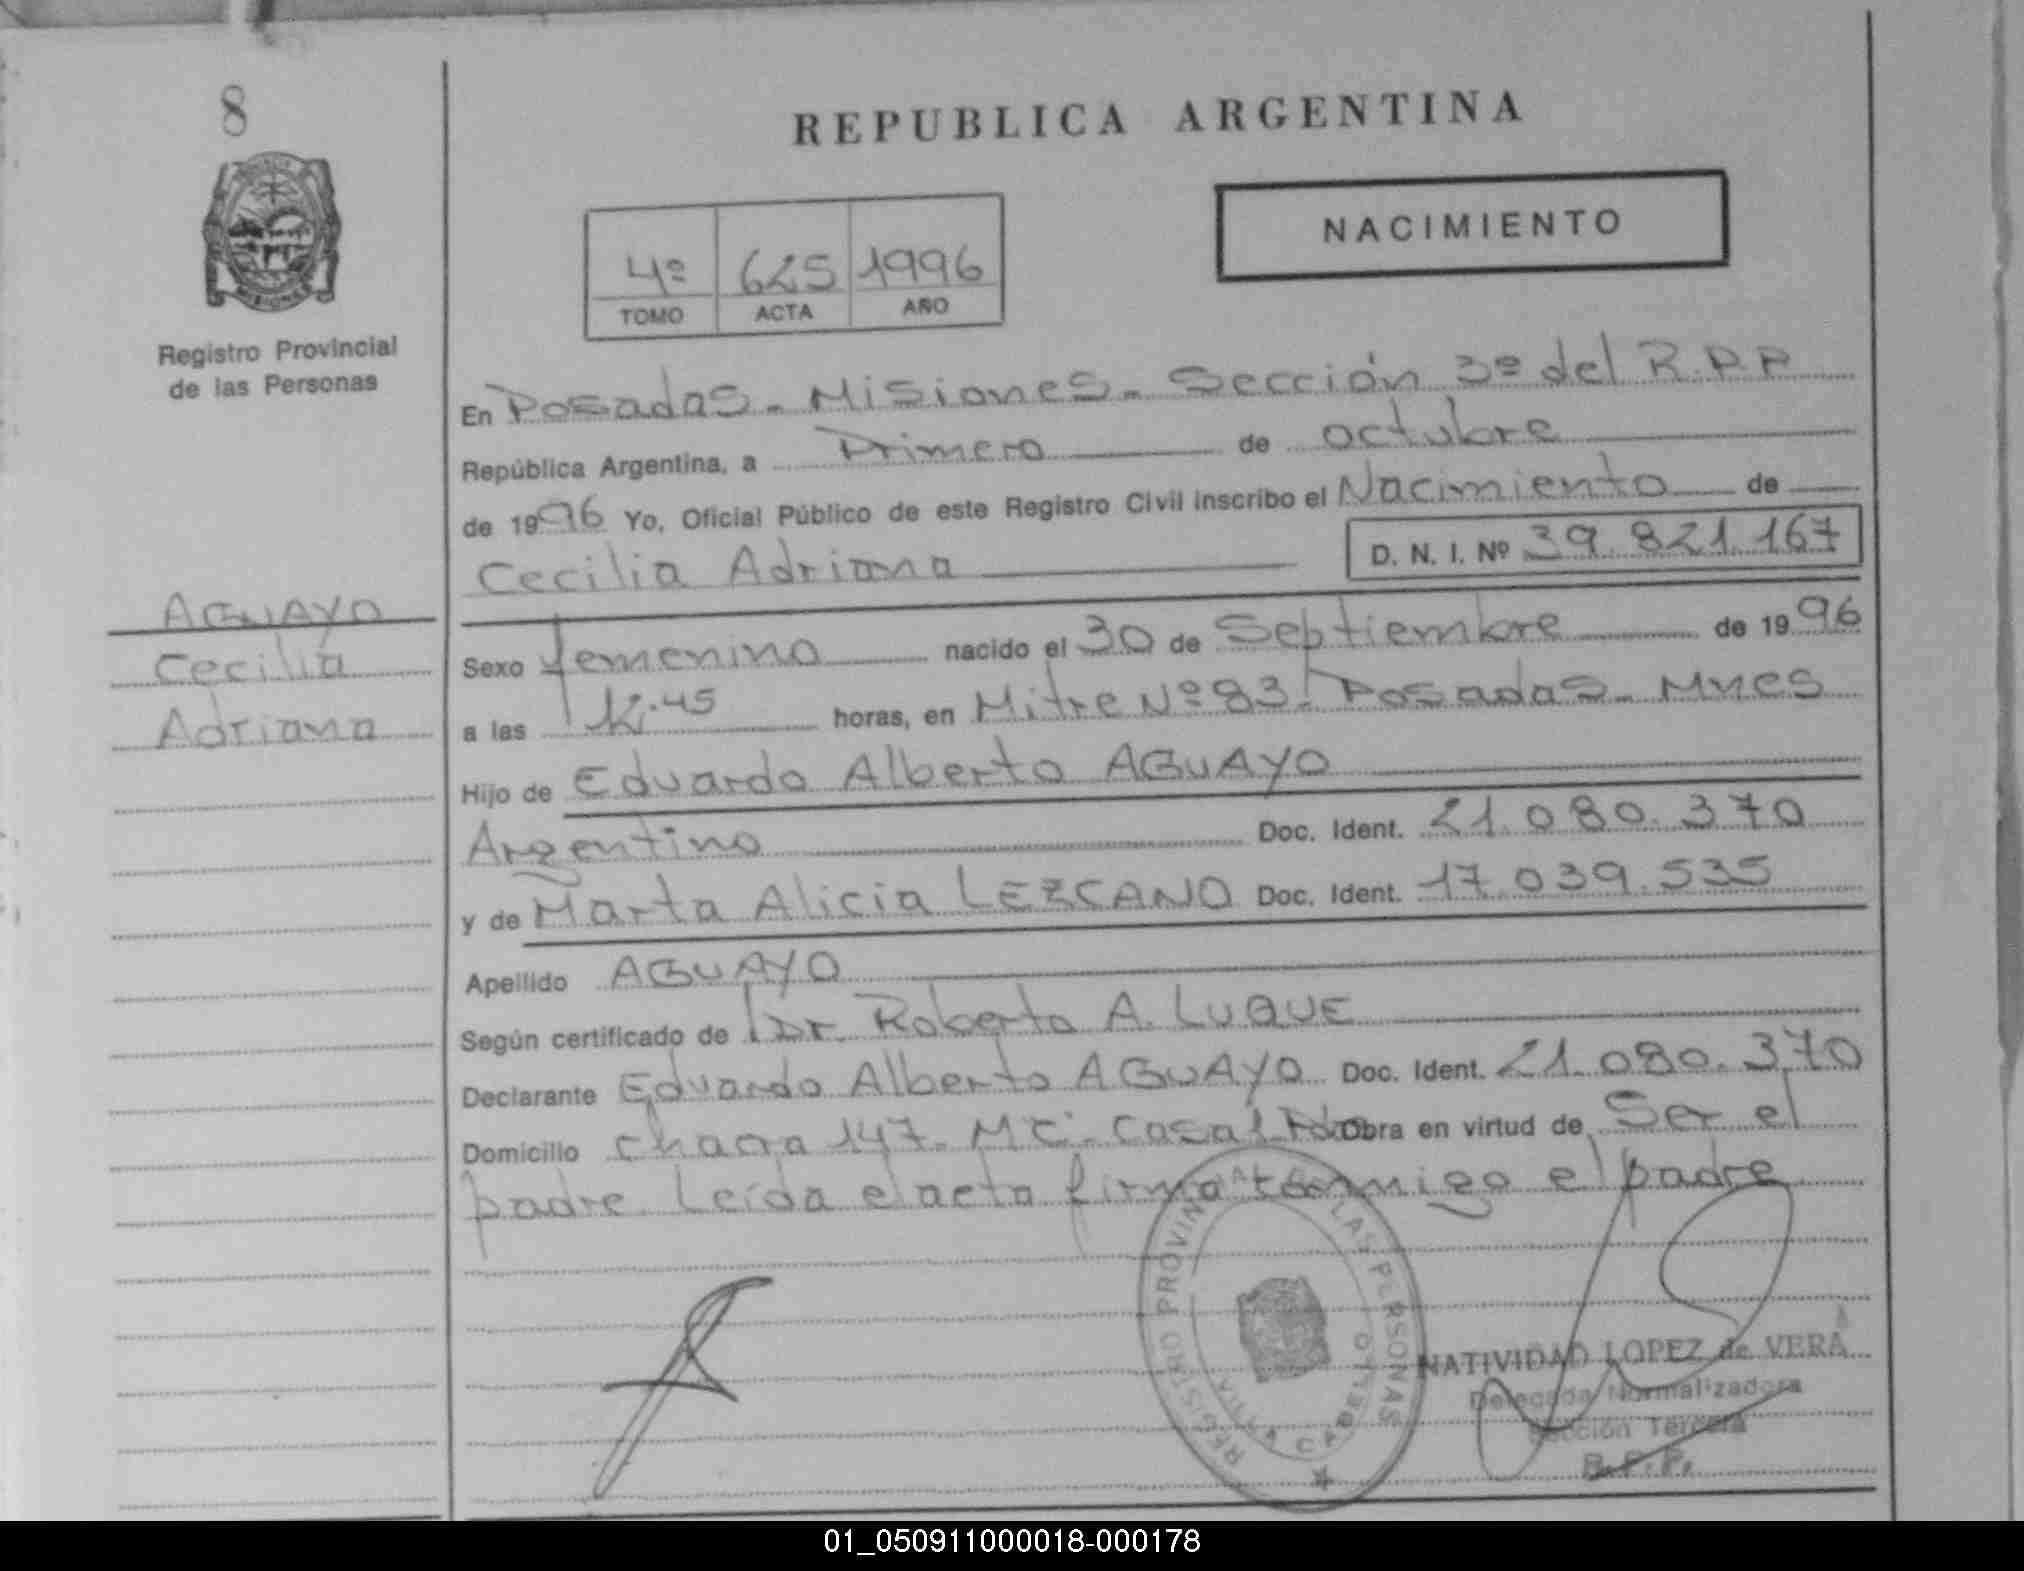 8
REPUBLICA ARGENTINA
NACIMIENTO
4º 625 1996
TOMO ACTA AÑO
MISIONES
Registro Provincial
de las Personas
En Posadas - Misiones - Sección 3º del R.P.P
República Argentina, a Primero de octubre
de 1996 Yo, Oficial Público de este Registro Civil inscribo el Nacimiento de
Cecilia Adriana D. N. I. Nº 39.821.167
AGUAYO
Cecilia
Adriana
Sexo femenino nacido el 30 de Septiembre de 1996
a las horas, en Mitre Nº 83. Posadas - Mnes
Hijo de Eduardo Alberto AGUAYO
Argentino Doc. Ident. 21.080.370
y de Marta Alicia LEZCANO Doc. Ident. 17.039.535
Apellido AGUAYO
Según certificado de Dr. Roberto A. LUQUE
Declarante Eduardo Alberto AGUAYO Doc. Ident. 21.080.370
Domicilio chacra 147. Casa Obra en virtud de Ser el
padre. Leída el acta firma conmigo el padre
REGISTRO PROVINCIAL DE LAS PERSONAS
VILLA CABELLO
NATIVIDAD LOPEZ de VERA
Delegada Normalizadora
Sección Tercera
R.P.P.
01_050911000018-000178